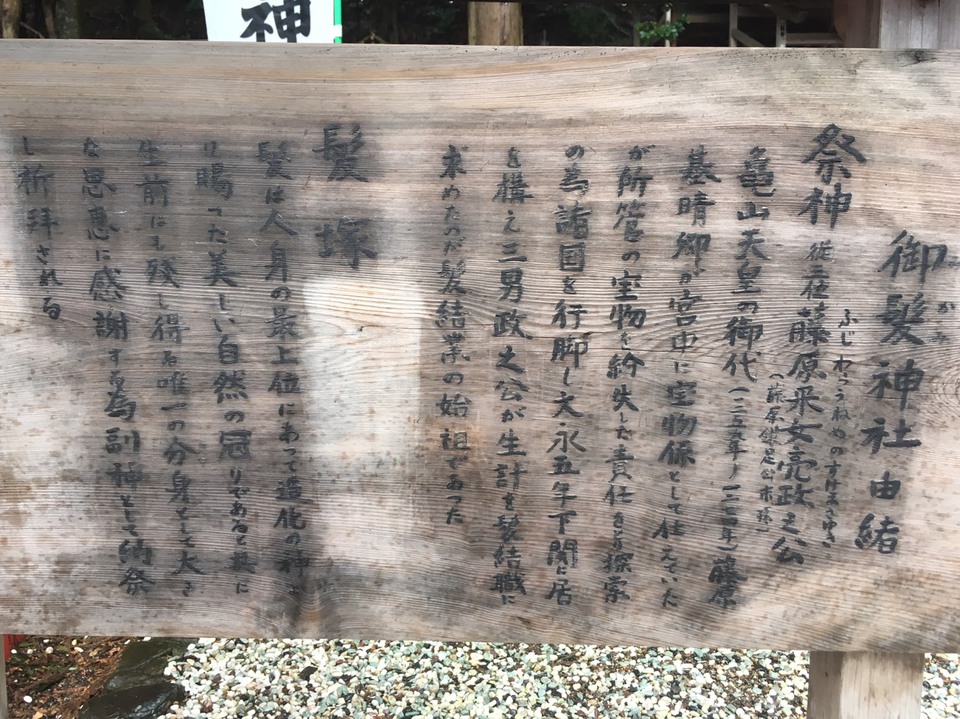 神
御髪神社由緒
みかみ
祭神 従三位藤原采女亮政之公
ふじわらうねめのすけまさゆき
(藤原鎌足公末孫)
亀山天皇の御代(一二五九年〜一二七四年)藤原
基晴卿が宮中に宝物係として仕えていた
が所管の宝物を紛失した責任をとり探索
の為諸国を行脚し文永五年下関に居
を構え三男政之公が生計を髪結職に
求めたのが髪結業の始祖であった
髪塚
髪は人身の最上位にあって造化の神よ
り賜った美しい自然の冠りであると共に
生前にも残し得る唯一の分身として大き
な恩恵に感謝する為副神として納祭
し祈拝される